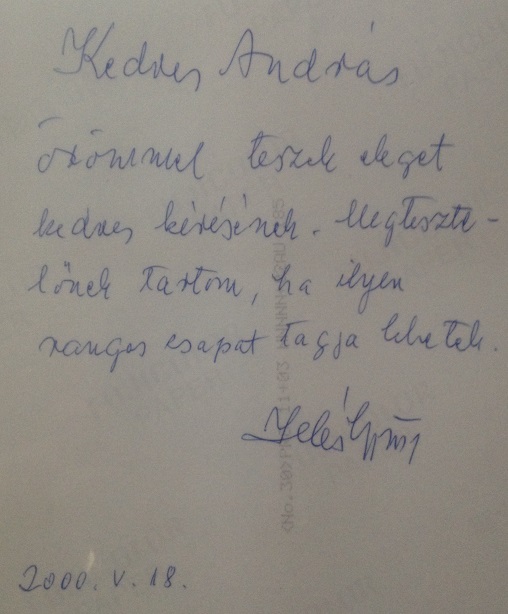 Kedves András
örömmel teszek eleget
kedves kérésének. Megtiszte-
lőnek tartom, ha ilyen
rangos csapat tagja lehetek.
2000. V. 18.